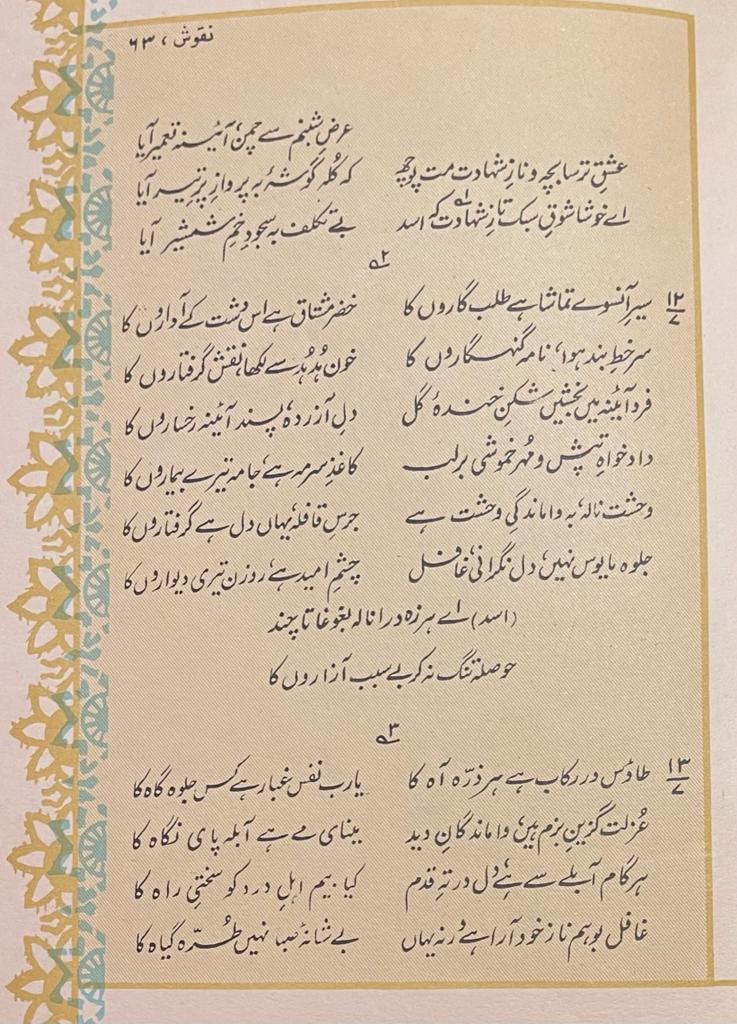 نقوش، ۶۳
عرضِ شبنم سے چمن، آئینہ تعمیر آیا
عشقِ ترسا بچہ و نازِ شہادت مت پوچھ کہ کُلہ گوشۂ بہ پروازِ پرِ تیر آیا
اے خوشا شوقِ سبک تازِ شہادت کہ اسد بے تکلف بہ سجودِ خمِ شمشیر آیا
۲
۱۲/۷ سیرِ آنسوے تماشا ہے طلب گاروں کا خضر مشتاق ہے اس دشت کے آواروں کا
سرخطِ بند ہوا، نامہ گنہگاروں کا خونِ ہُدہُد سے لکھا، نقش گرفتاروں کا
فرد آئینہ میں بخشیں شکنِ خندۂ گل دلِ آزردہ پسند آئینہ رخساروں کا
داد خواہِ تپش و مُہرِ خموشی بر لب کاغذِ سرمہ ہے، جامہ تیرے بیماروں کا
وحشتِ نالہ، بہ واماندگیِ وحشت ہے جرسِ قافلہ، یہاں دل ہے گرفتاروں کا
جلوہ مایوس نہیں، دل نگرانی، غافل چشمِ امید ہے، روزن تیری دیواروں کا
(اسد) اے ہرزہ درا نالہ بغوغا تا چند
حوصلہ تنگ نہ کر بے سبب آزاروں کا
۳
۱۳/۷ طاؤس در رکاب ہے ہر ذرّہ آہ کا یارب نفس غبار ہے کس جلوہ گاہ کا
عُزلت گزینِ بزم ہیں، واماندگانِ دید مینای مے ہے آبلہ پای نگاہ کا
ہر گام آبلے سے ہے، دل در تہِ قدم کیا بیم اہلِ درد کو سختیِ راہ کا
غافل بوہمِ ناز خود آرا ہے ورنہ یہاں بے شانۂ صبا نہیں طُرّہ گیاہ کا